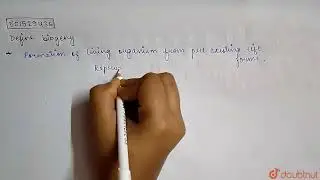 501529436
Define biogeny
→ Formation of living organism from pre existing life
forms.
Repro
doubtnut